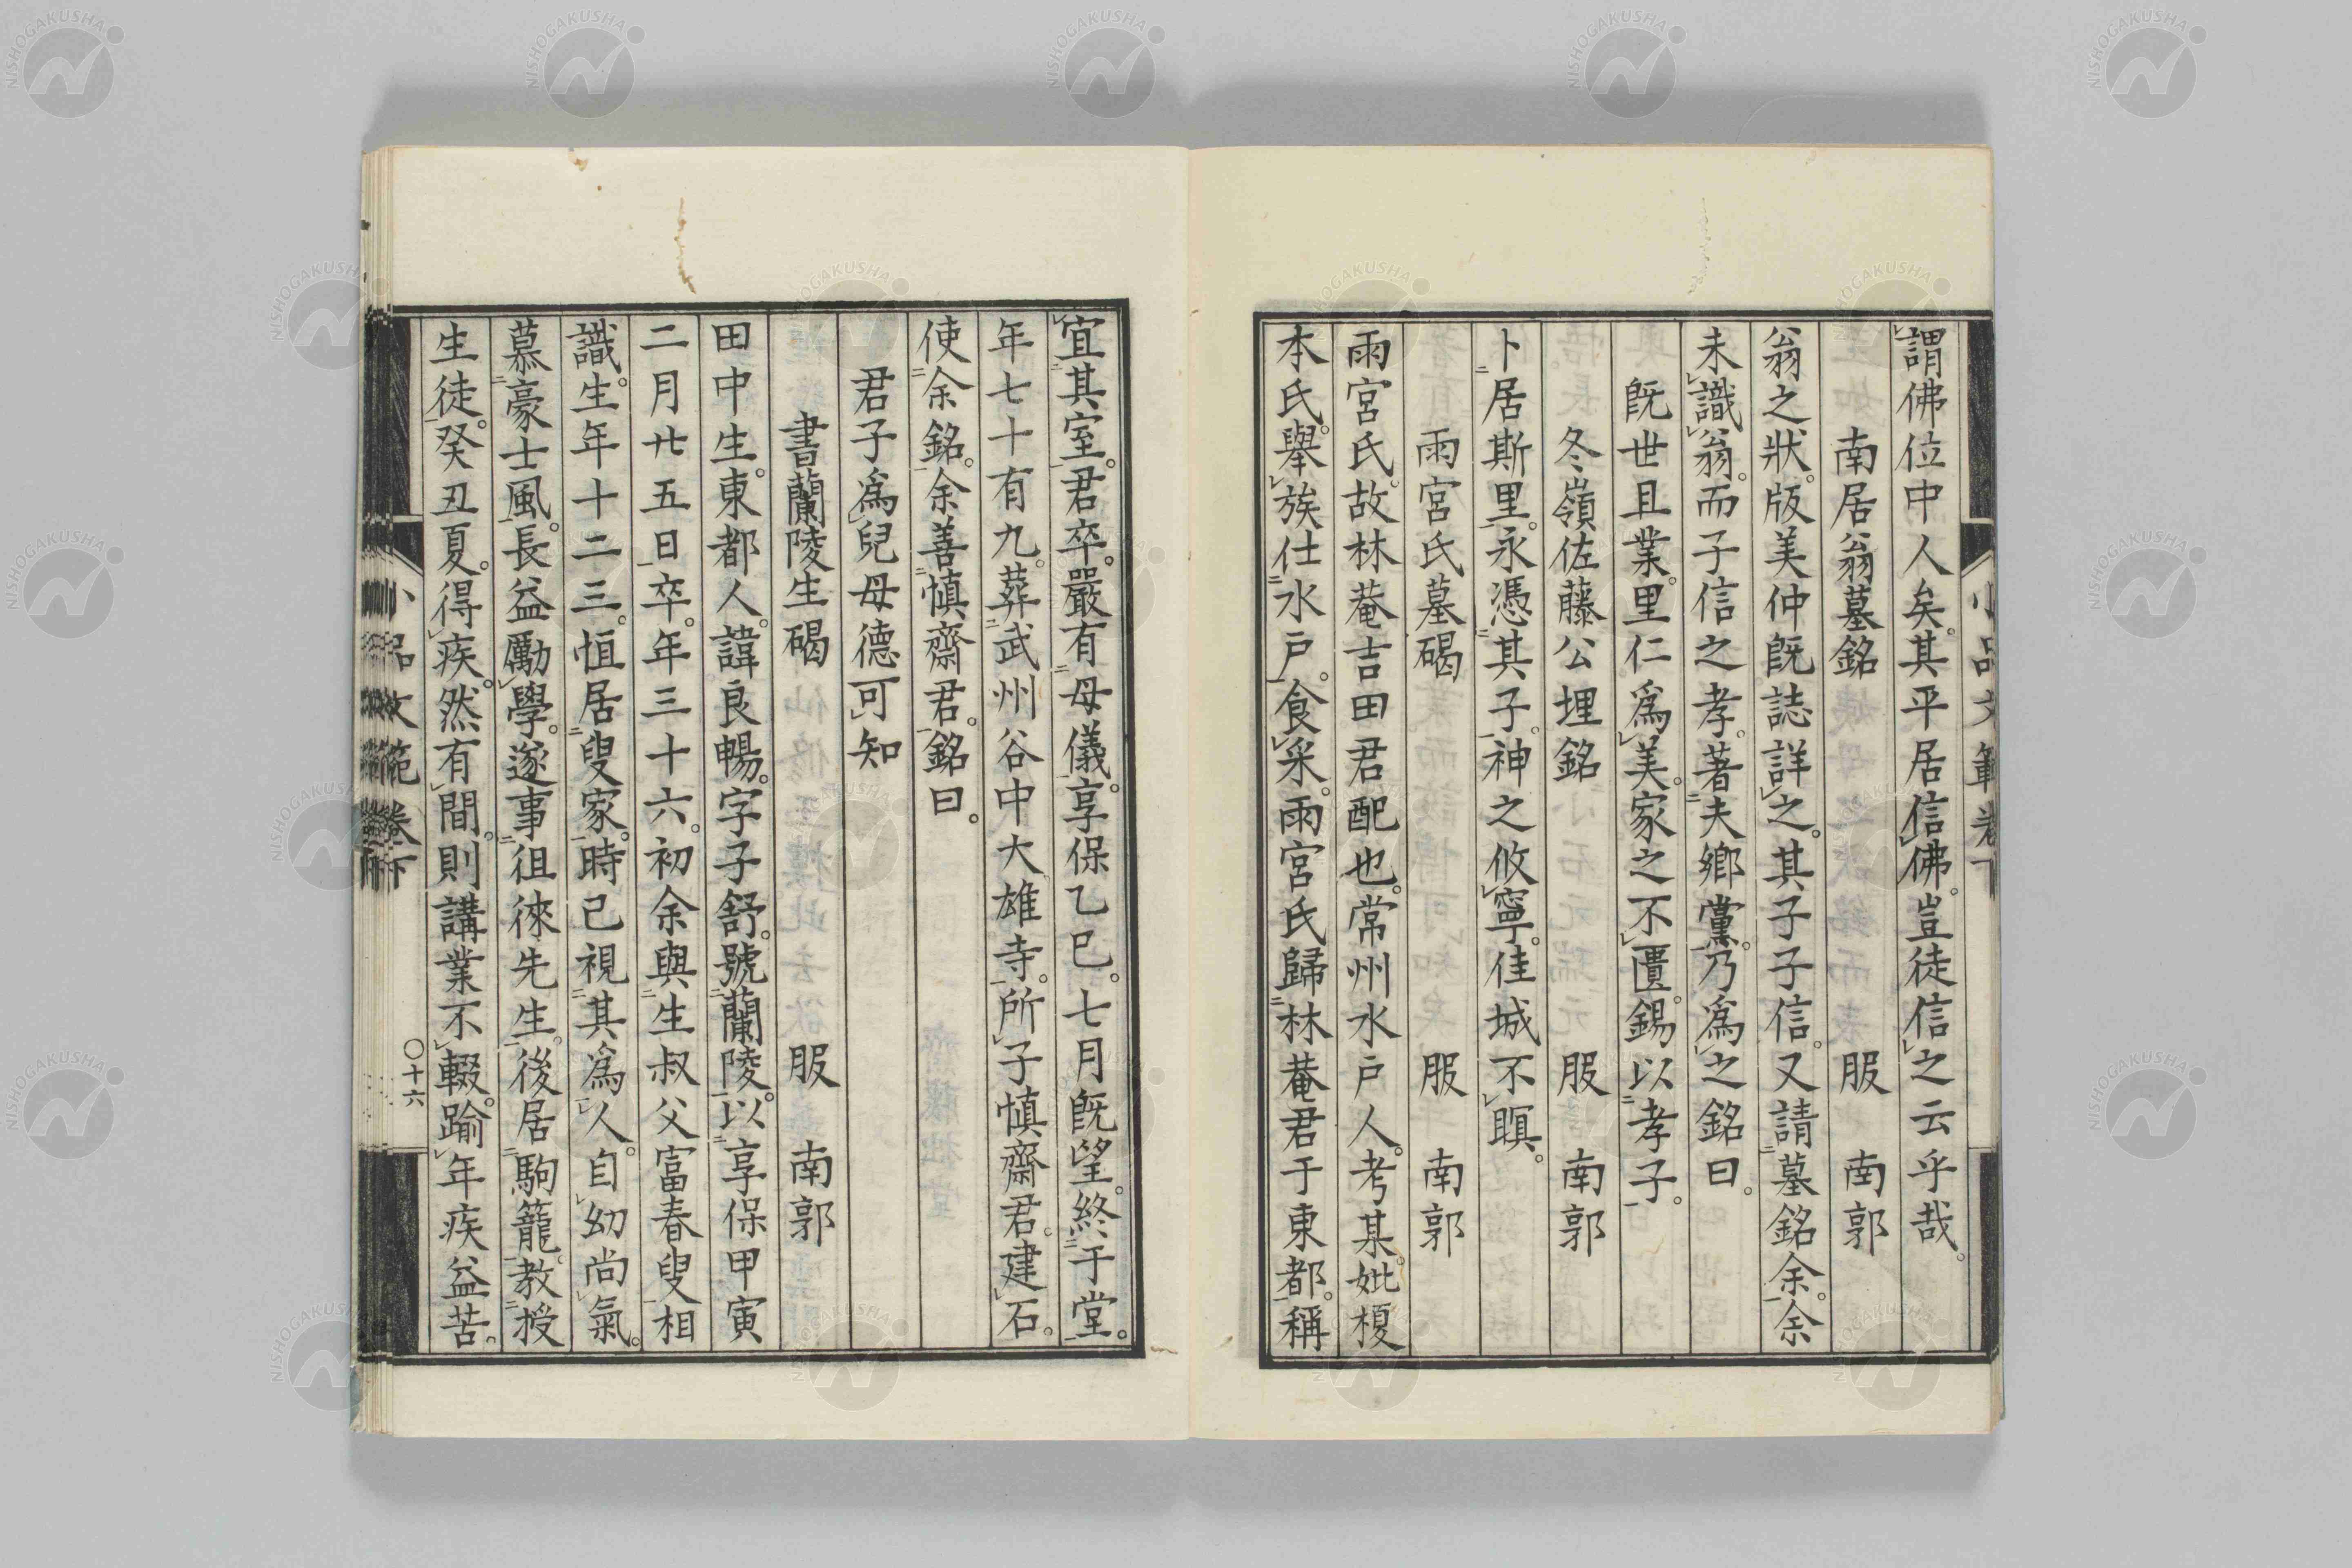 謂佛位中人矣。其平居信佛。豈徒信之云乎哉。
南居翁墓銘　服　南郭
翁之狀。版美仲既誌詳之。其子子信。又請墓銘余。余
未識翁。而子信之孝。著夫鄉黨。乃爲之銘曰。
既世且業。里仁爲美。家之不匱。錫以孝子。
冬嶺佐藤公埋銘　服　南郭
卜居斯里。永憑其子。神之攸寧。佳城不瞑。
雨宮氏墓碣　服　南郭
雨宮氏。故林菴吉田君配也。常州水戶人。考某。妣榎
本氏。舉族仕水戶。食采。雨宮氏歸林菴君于東都。稱
宜其室。君卒。嚴有母儀。享保乙巳。七月既望。終于堂。
年七十有九。葬武州谷中大雄寺。所子慎齋君。建石。
使余銘。余善慎齋君。銘曰。
君子爲兒母德可知
書蘭陵生碣　服　南郭
田中生。東都人。諱良暢。字子舒。號蘭陵。以享保甲寅
二月廿五日卒。年三十六。初余與生叔父富春叟相
識。生年十二三。恒居叟家。時已視其爲人。自幼尚氣。
慕豪士風。長益勵學。遂事徂徠先生。後居駒籠。教授
生徒。癸丑夏。得疾。然有間。則講業不輟。踰年疾益苦。
小品文範卷下
〇十六
NISHOGAKUSHA